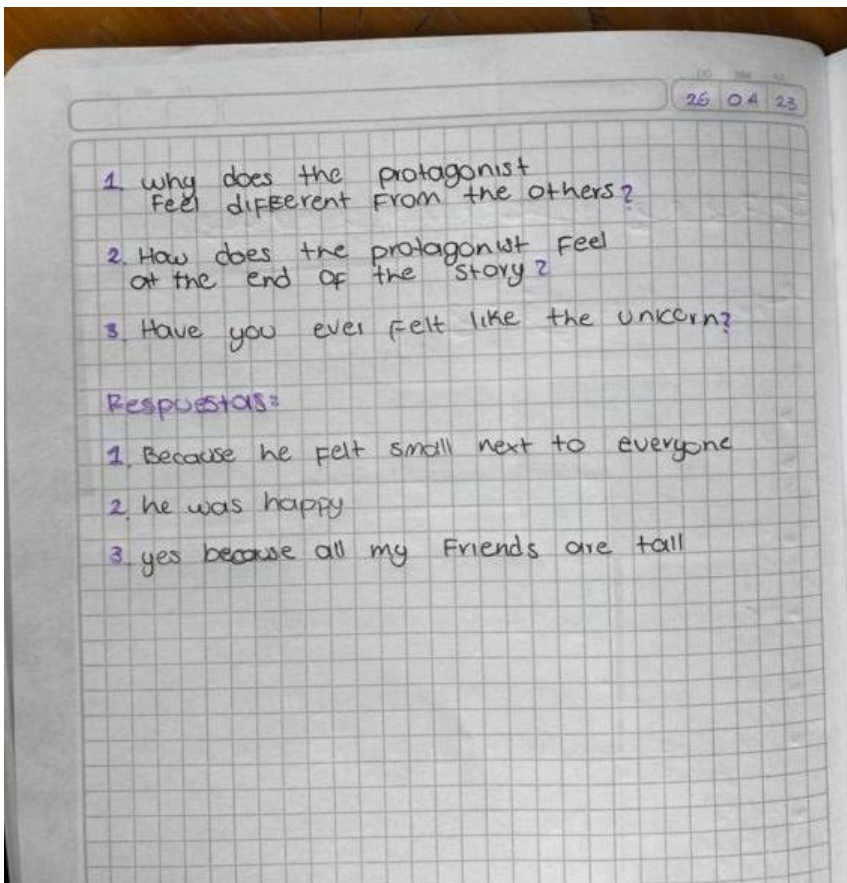 26 04 23
1. why does the protagonist
Feel different From the others?
2. How does the protagonist Feel
at the end OF the story?
3. Have you ever Felt like the unicorn?
Respuestas:
1. Because he Felt small next to everyone
2. he was happy
3. yes because all my Friends are tall